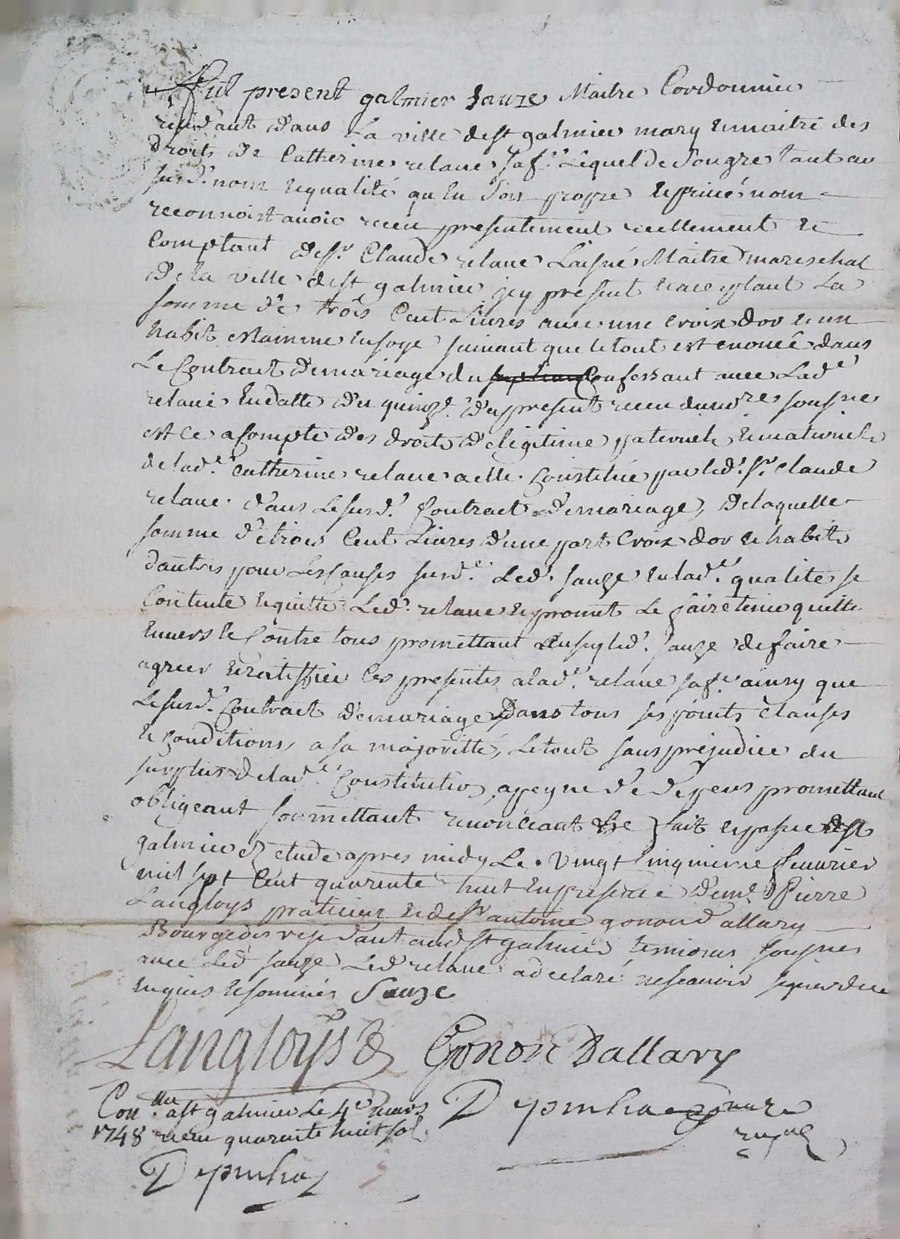 Fut present galmier Sauze Maitre Cordonnier
residant dans La ville de st galmier mary & maitre des
droits de Catherine relave sa fe. Lequel de Son gre tant au
susd. nom & qualité qu'en Son propre & privé nom
reconnoist avoir receu presentement reellement &
Comptant de sr. Claude relave Laisné Maitre mareschal
de la ville de st galmier icy present & acceptant La
somme de trois Cent Livres avec une Croix dor & un
habit en soye suivant que le tout est enoncé dans
Le Contract de mariage du Confessant avec Lade
relave en datte du quinze. du present receu du nre. soussigné
est ce a Compte des droits de legitime paternels & maternels
de lade. Catherine relave a elle Constitué par led. sr. Claude
relave dans Le susd. Contract de mariage, de laquelle
somme de trois Cent Livres d'une part Croix dor & habits
dautres pour Les Causes susd. Led. Sauze en lade. qualité se
Contente & quitte Led. relave & promet Le faire tenir quitte
Envers & Contre tous promettant led. Sauze de faire
agreer & ratiffier Ces presentes a lade. relave sa fe. ainsy que
Le susd. Contract de mariage Dans tous ses points Clauses
& Conditions, a sa majorité, Le tout sans prejudice du
surplus de lade. Constitution, a peyne de depens promettant
obligeant soumettant renonceant &c fait & passé a st
galmier etude apres midy Le vingt Cinquieme fevrier
mil sept Cent quarente huit En presence de me. Pierre
Langloys praticien & de sr antoine gonon d allary
Bourgeois residant aud. st galmier temoins soussignés
avec Led Sauze Led relave a declaré ne scavoir signer de ce
Enquis & sommés Sauze
Langloys Gonon Dallary
Conlle a st galmier Le 4e mars
1748 receu quarente huit sol.